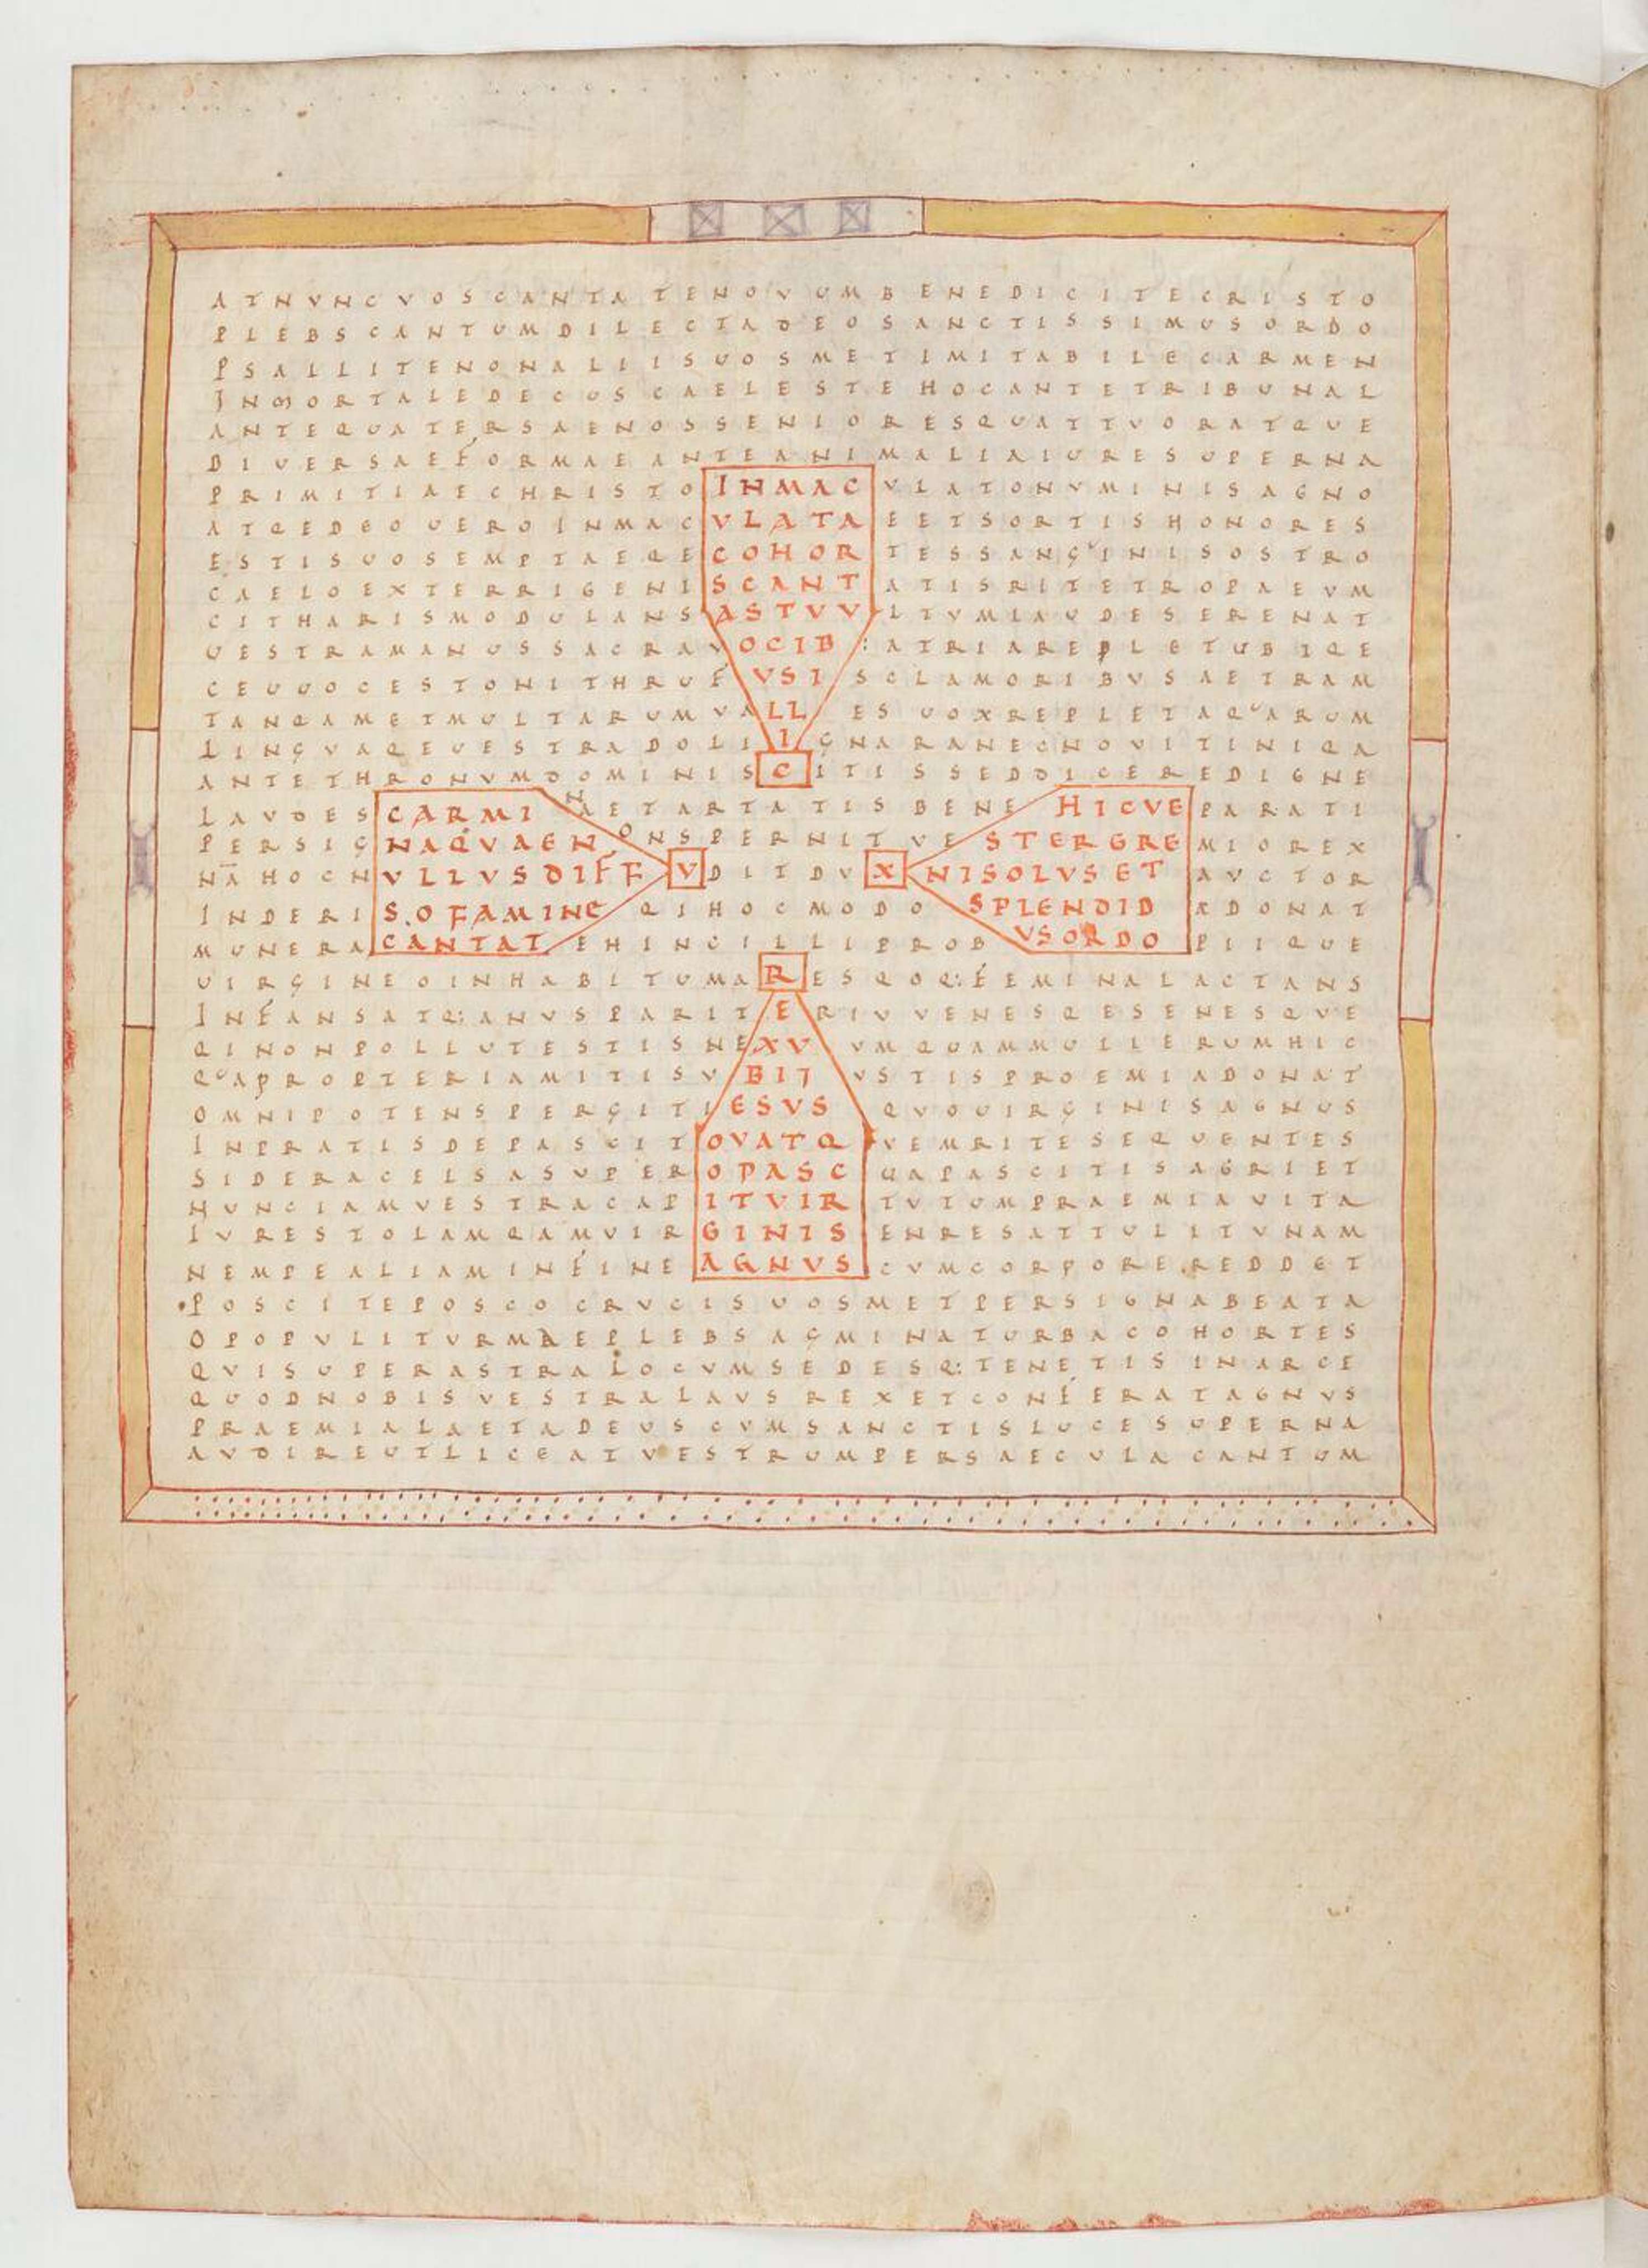 ATNVNCVOSCANTATENOVUMBENEDICITECRISTO
PLEBSCANTUMDILECTADEOSANCTISSIMUSORDO
PSALLITENONALIISUOSMETIMITABILECARMEN
INMORTALEDECUSCAELESTEHOCANTETRIBUNAL
ANTEQUATERSAENOSSENIORESQUATTVORATQUE
DIUERSAEFORMAEANTEANIMALIAIURESUPERNA
PRIMITIAECHRISTOINMACVLATONVMINISAGNO
ATQEDEOUEROINMACVLATAEETSORTISHONORES
ESTISUOSEMPTAEQECOHORTESSANGUINISOSTRO
CAELOEXTERRIGENISCANTATISRITETROPAEVM
CITHARISMODULANSASTVVLTVMLAUDESERENAT
UESTRAMANUSSACRAVOCIB:ATRIAREPLETUBIQE
CEUUOCESTONITHRUFVSISCLAMORIBVSAETRAM
TANQAMETMULTARUMVALLESUOXREPLETAQUARUM
LINGVAQEUESTRADOLIIGNARANECNOVITINIQA
ANTETHRONVMDOMINISCITISSEDDICEREDIGNE
LAVDESCARMINAETARTATISBENEHICVEPARATI
PERSIGNAQVAENONSPERNITVESTERGREMIOREX
NĀHOCNVLLVSDIFFVDITDVXNISOLVSETAVCTOR
INDERISOFAMINEQIHOCMODOSPLENDIDADONAT
MUNERACANTATEHINCILLIPROBVSORDOPIIQUE
UIRGINEOINHABITUMARESQOQ:FEMINALACTANS
INFANSATQ:ANVSPARITERIVVENESQESENESQVE
QINONPOLLUTESTISNEXVVMQUAMMULIERUMHIC
QUAPROPTERIAMITISVBIIVSTISPROEMIADONAT
OMNIPOTENSPERGITIESVSQVOUIRGINISAGNUS
INPRATISDEPASCITOVATQVEMRITESEQUENTES
SIDERACELSASVPEROPASCUAPASCITISAGRIET
HUNCIAMVESTRACAPITVIRTVTUMPRAEMIAUITA
IVRESTOLAMQAMVIRGINISENRESATTULITVNAM
NEMPEALIAMINFINEAGNVSCVMCORPORE.REDDET
POSCITEPOSCOCRVCISUOSMETPERSIGNABEATA
OPOPVLITVRMAEPLEBSAGMINATURBACOHORTES
QVISUPERASTRALOCVMSEDESQ:TENETISINARCE
QUODNOBISVESTRALAVSREXETCONFERATAGNVS
PRAEMIALAETADEUSCVMSANCTISLUCESUPERNA
AVDIREUTLICEATVESTRUMPERSAECVLACANTUM